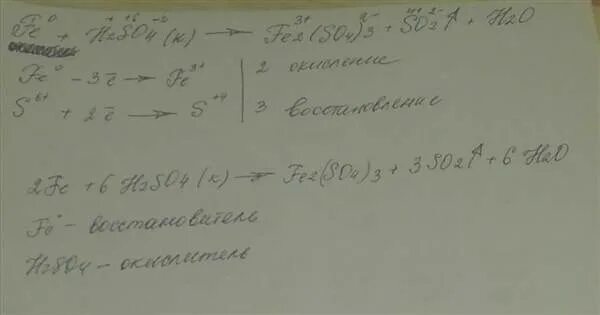 Fe⁰ + H₂SO₄ (к) → Fe₂(SO₄)₃ + SO₂↑ + H₂O
Fe⁰ - 3ē → Fe³⁺ | 2 окисление
S⁶⁺ + 2ē → S⁺⁴ | 3 восстановление
2Fe + 6H₂SO₄ (к) → Fe₂(SO₄)₃ + 3SO₂↑ + 6H₂O
Fe⁰ - восстановитель
H₂SO₄ - окислитель